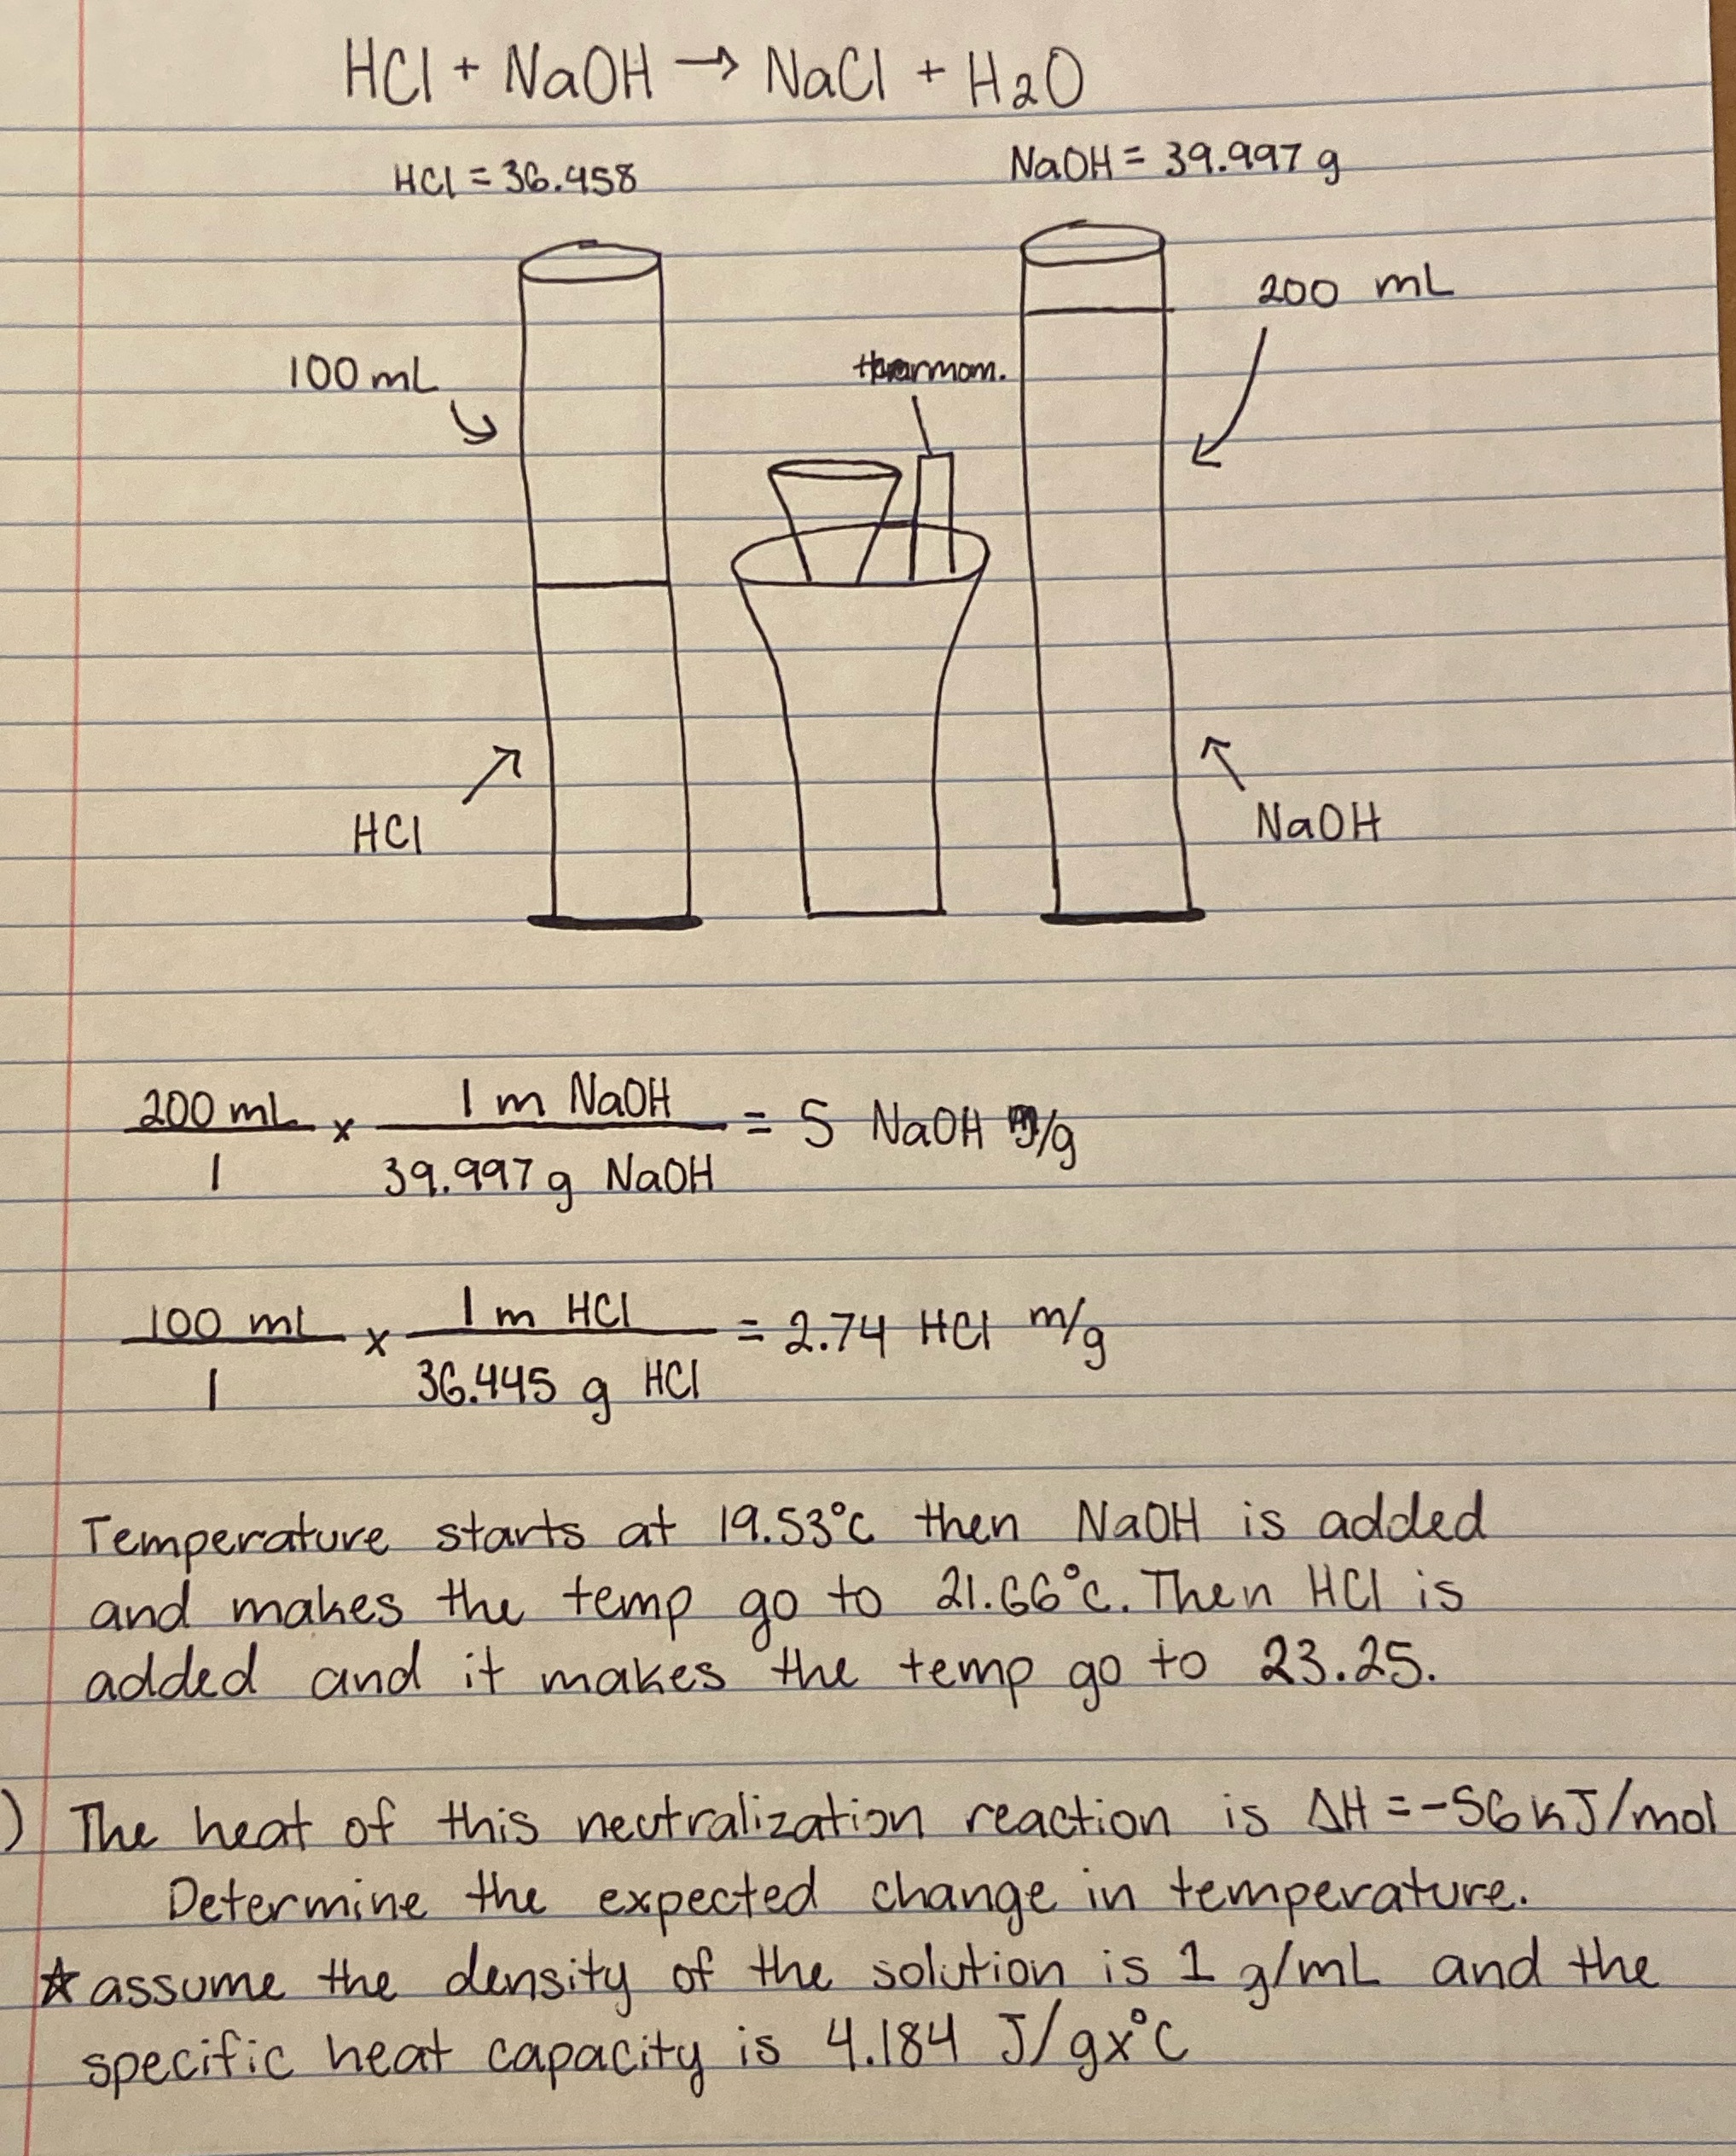 HCl + NaOH → NaCl + H2O
HCl = 36.458
NaOH = 39.997 g
100 mL
200 mL
HCl
NaOH
200 mL / 1 x 1 m NaOH / 39.997 g NaOH = 5 NaOH m/g
100 mL / 1 x 1 m HCl / 36.445 g HCl = 2.74 HCl m/g
Temperature starts at 19.53°C then NaOH is added
and makes the temp go to 21.66°C. Then HCl is
added and it makes the temp go to 23.25.
) The heat of this neutralization reaction is ΔH = -56 kJ/mol
Determine the expected change in temperature.
☆ assume the density of the solution is 1 g/mL and the
specific heat capacity is 4.184 J/gx°C